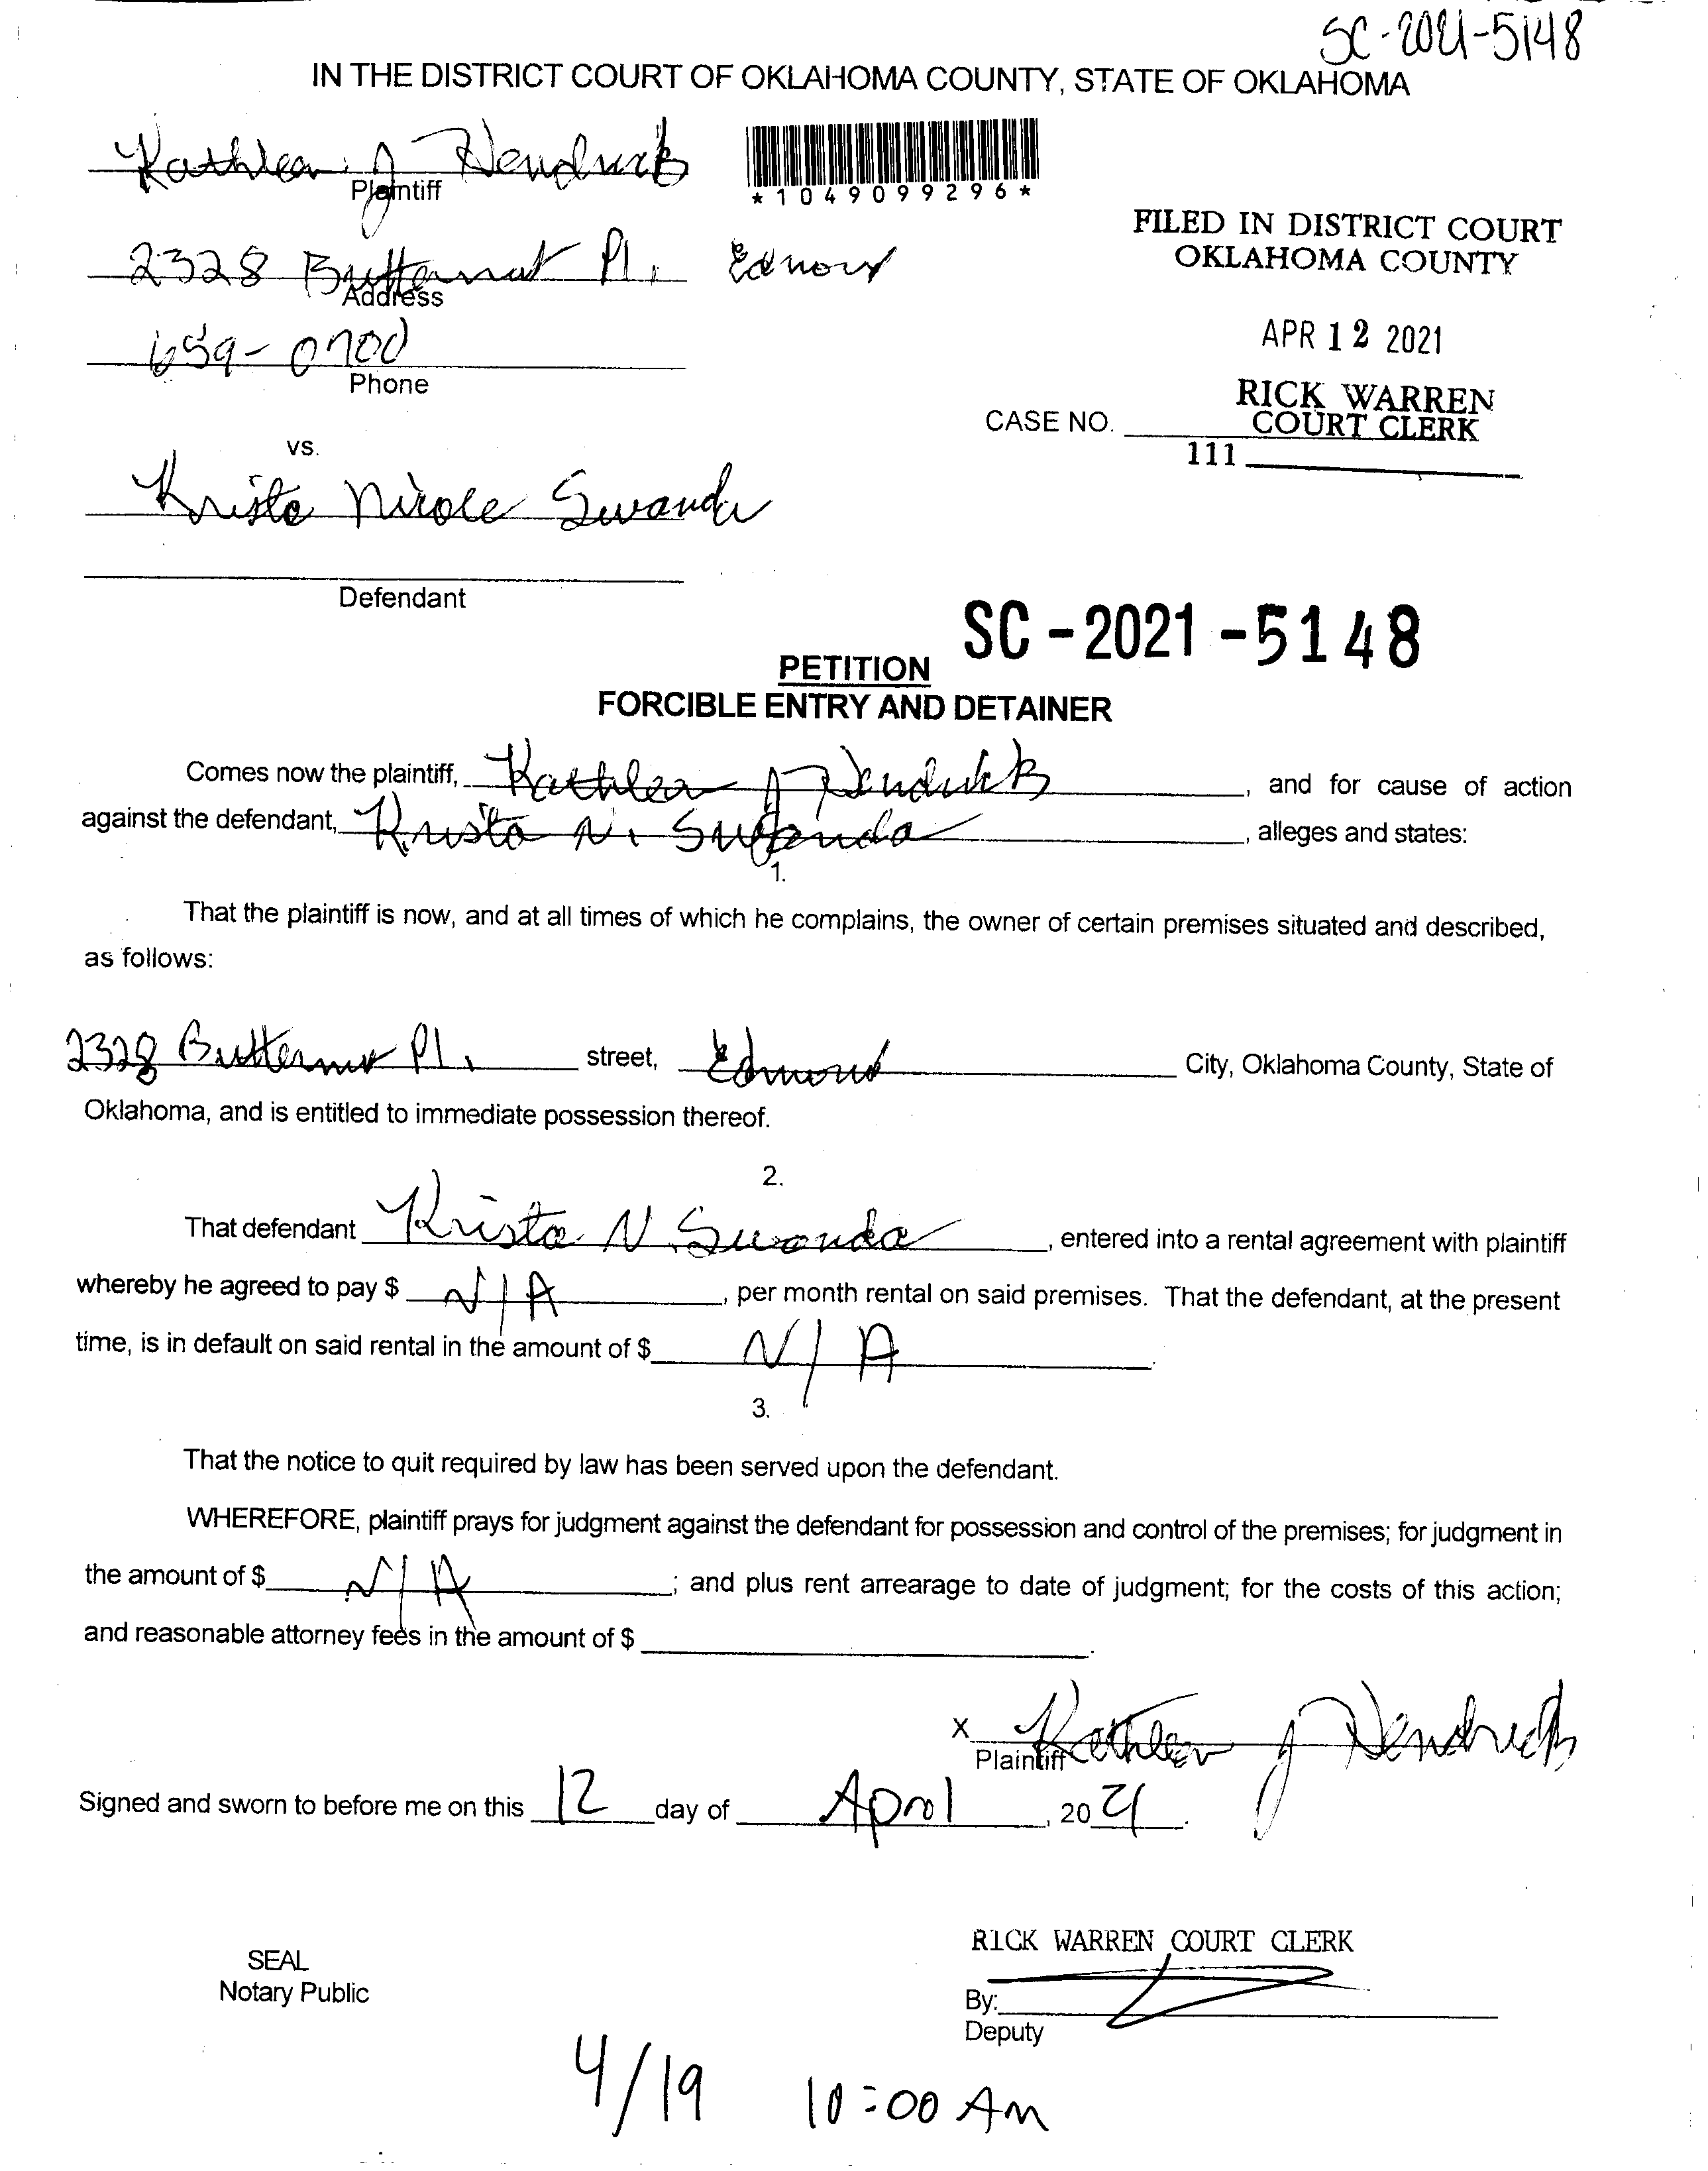 SC-2021-5148
IN THE DISTRICT COURT OF OKLAHOMA COUNTY, STATE OF OKLAHOMA
Kathleen J Hendricks
Plaintiff
*1049099296*
FILED IN DISTRICT COURT
OKLAHOMA COUNTY
2328 Butternut Pl. Edmond
Address
APR 12 2021
659-0700
Phone
RICK WARREN
COURT CLERK
CASE NO.
111
vs.
Krista Nicole Swanda
Defendant
SC-2021-5148
PETITION
FORCIBLE ENTRY AND DETAINER
Comes now the plaintiff, Kathleen J Hendricks, and for cause of action
against the defendant, Krista N. Swanda, alleges and states:
1.
That the plaintiff is now, and at all times of which he complains, the owner of certain premises situated and described,
as follows:
2328 Butternut Pl. street, Edmond City, Oklahoma County, State of
Oklahoma, and is entitled to immediate possession thereof.
2.
That defendant Krista N. Swanda, entered into a rental agreement with plaintiff
whereby he agreed to pay $ N/A, per month rental on said premises. That the defendant, at the present
time, is in default on said rental in the amount of $ N/A.
3.
That the notice to quit required by law has been served upon the defendant.
WHEREFORE, plaintiff prays for judgment against the defendant for possession and control of the premises; for judgment in
the amount of $ N/A; and plus rent arrearage to date of judgment; for the costs of this action;
and reasonable attorney fees in the amount of $ .
X Kathleen J Hendricks
Plaintiff
Signed and sworn to before me on this 12 day of April, 2021.
RICK WARREN COURT CLERK
SEAL
Notary Public
By:
Deputy
4/19 10:00 AM